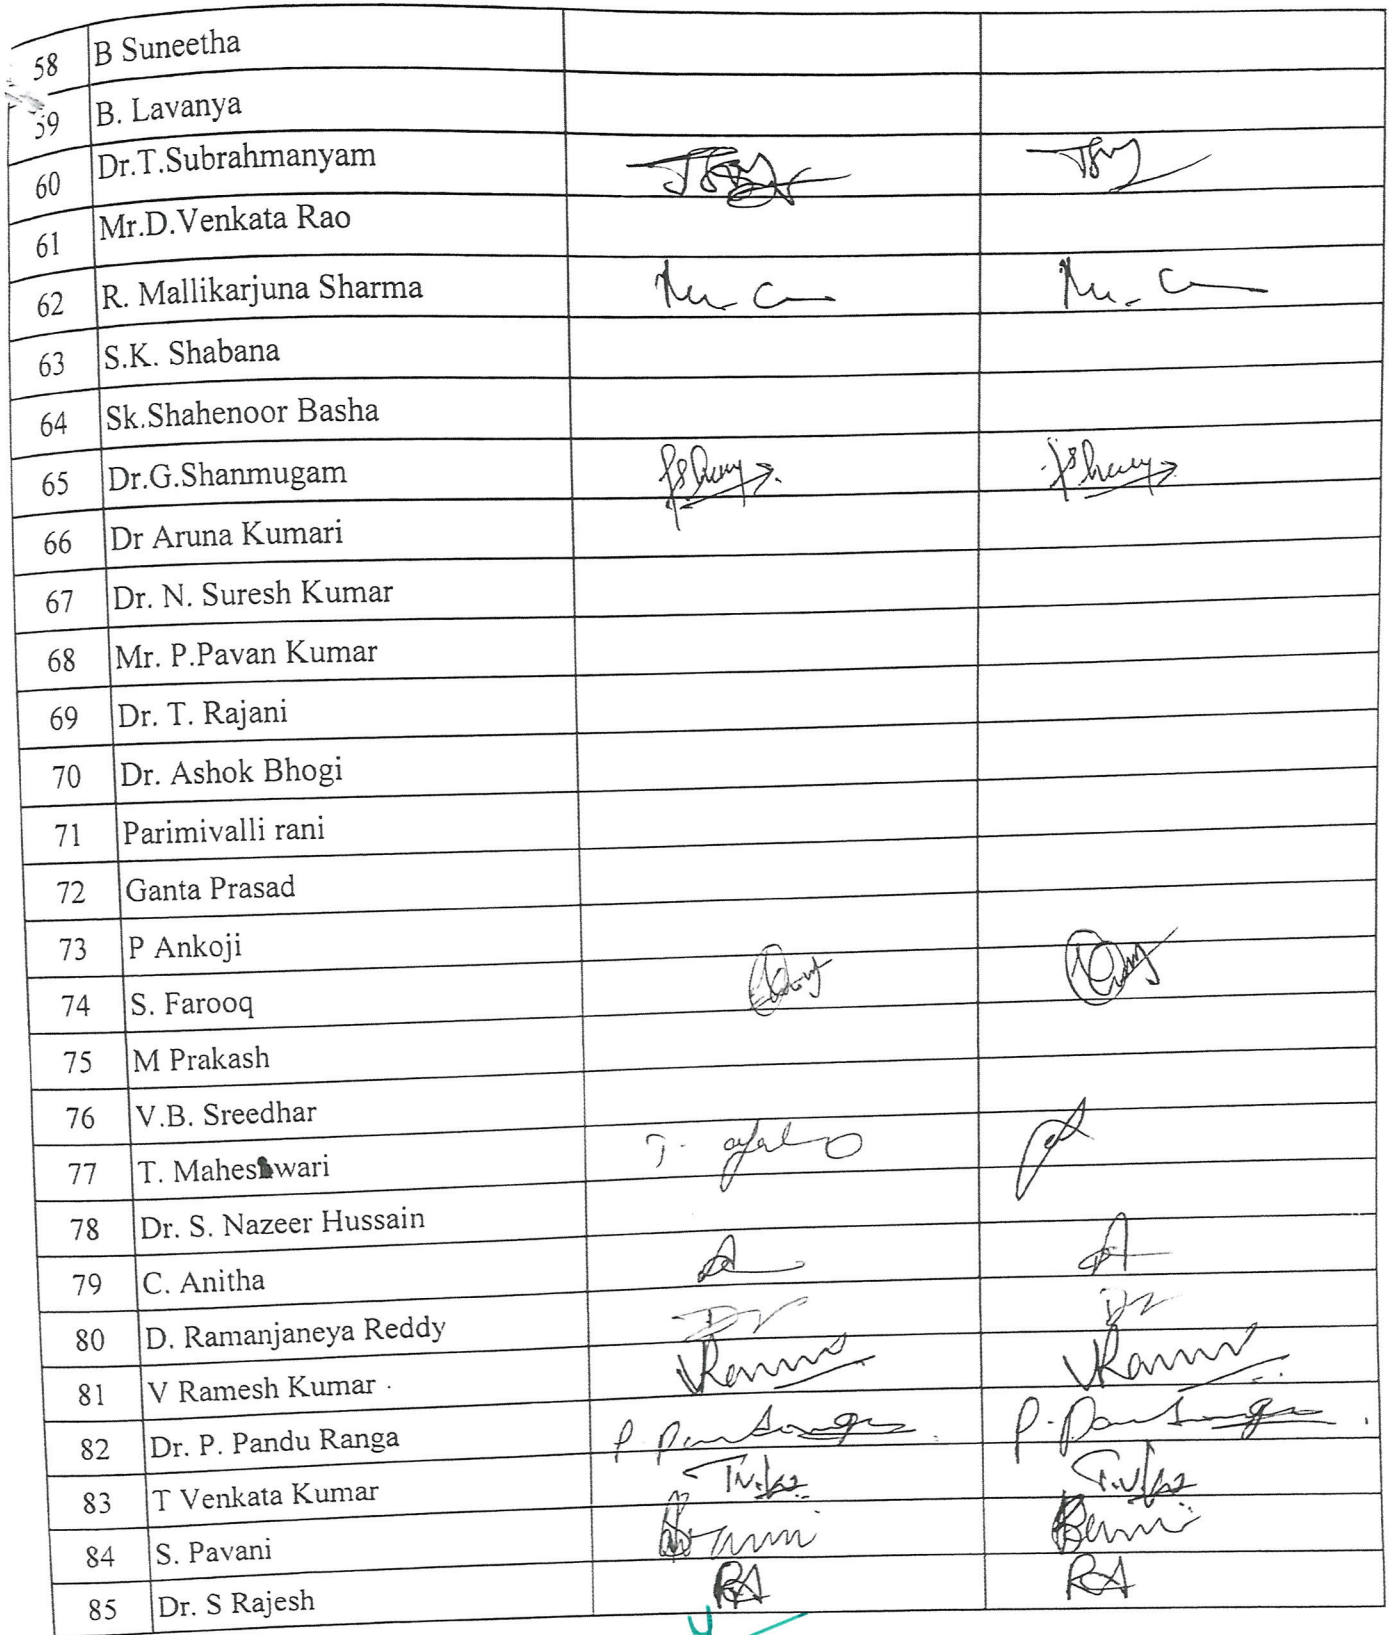 58 B Suneetha
59 B. Lavanya
60 Dr.T.Subrahmanyam
61 Mr.D.Venkata Rao
62 R. Mallikarjuna Sharma
63 S.K. Shabana
64 Sk.Shahenoor Basha
65 Dr.G.Shanmugam
66 Dr Aruna Kumari
67 Dr. N. Suresh Kumar
68 Mr. P.Pavan Kumar
69 Dr. T. Rajani
70 Dr. Ashok Bhogi
71 Parimivalli rani
72 Ganta Prasad
73 P Ankoji
74 S. Farooq
75 M Prakash
76 V.B. Sreedhar
77 T. Maheswari
78 Dr. S. Nazeer Hussain
79 C. Anitha
80 D. Ramanjaneya Reddy
81 V Ramesh Kumar
82 Dr. P. Pandu Ranga
83 T Venkata Kumar
84 S. Pavani
85 Dr. S Rajesh RA RA